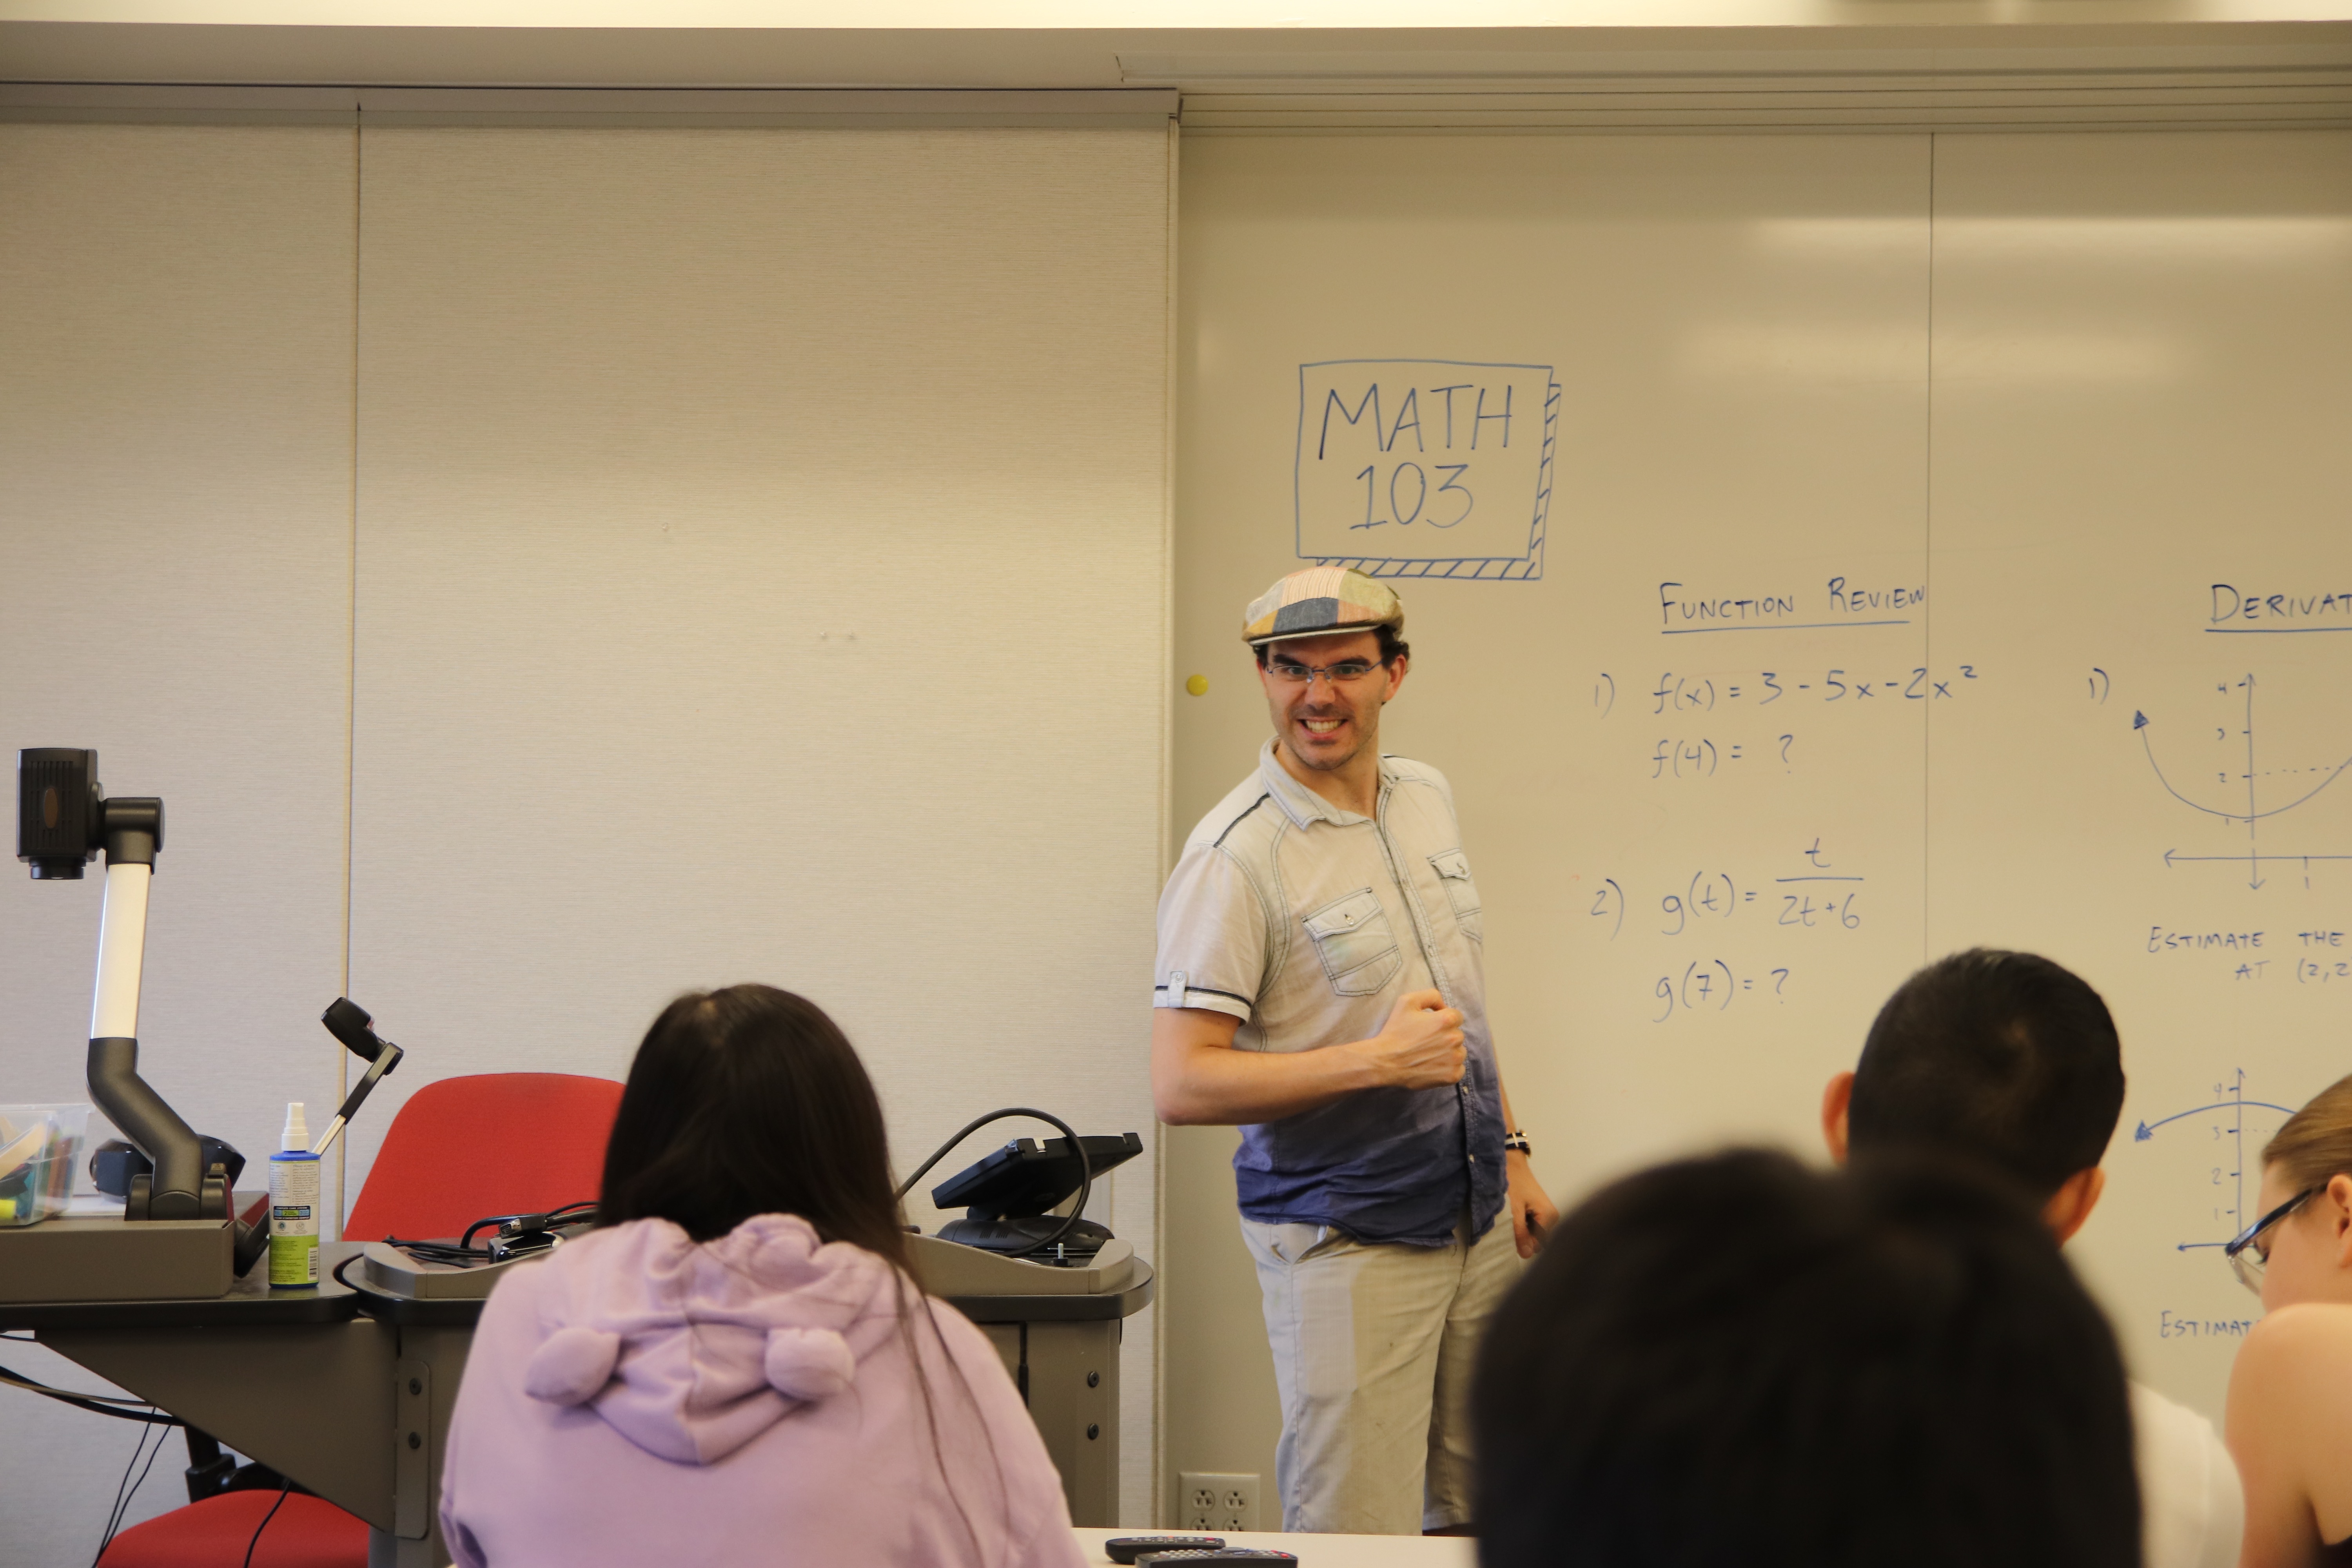 MATH
103
FUNCTION REVIEW
1) f(x) = 3 - 5x - 2x²
f(4) = ?
2) g(t) = t / 2t+6
g(7) = ?
DERIVAT
1)
4
3
2
1
1
ESTIMATE THE
AT (2,2
4
3
2
1
ESTIMAT